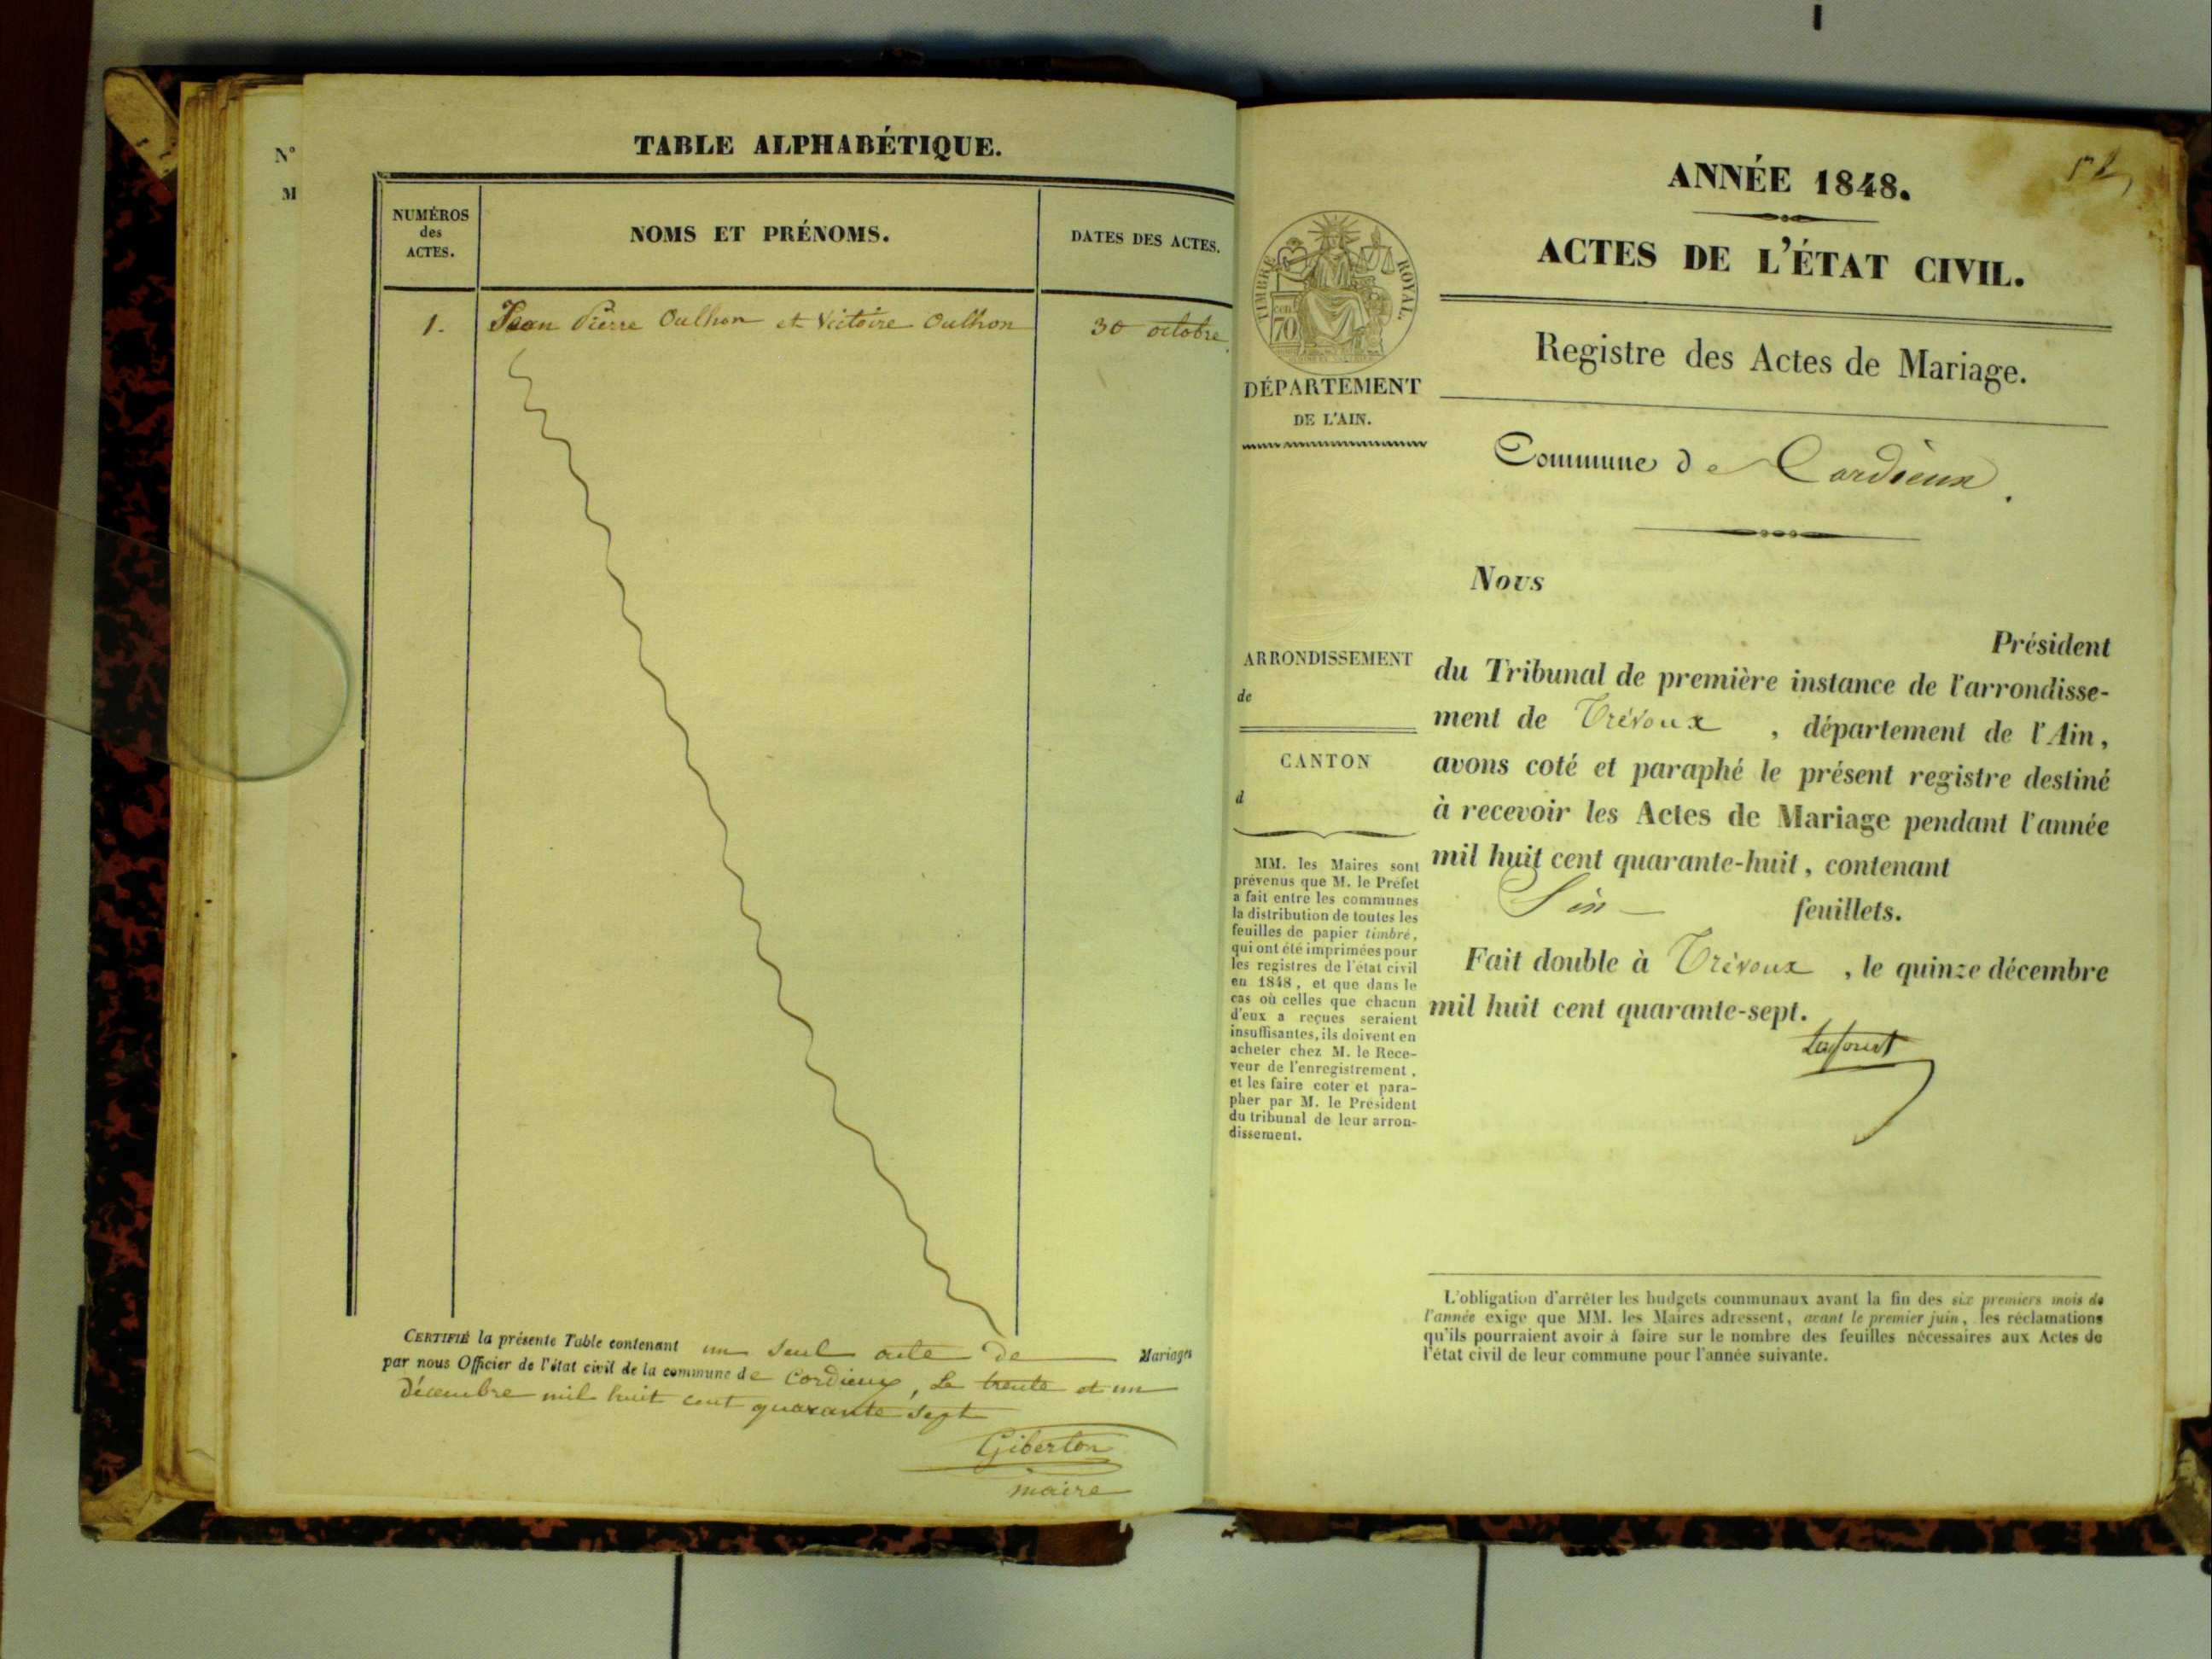 N°
M
TABLE ALPHABÉTIQUE.
NUMÉROS
des
ACTES.
NOMS ET PRÉNOMS.
DATES DES ACTES.
1. Jean Pierre Oulhon et Victoire Oulhon 30 octobre
CERTIFIÉ la présente Table contenant un seul acte de Mariages
par nous Officier de l'état civil de la commune de Cordieux, Le trente et un
décembre mil huit cent quarante sept
Giberton
maire
ANNÉE 1848.
ACTES DE L'ÉTAT CIVIL.
TIMBRE ROYAL.
cen
70
DÉPARTEMENT
DE L'AIN.
Registre des Actes de Mariage.
Commune de Cordieux.
Nous
Président
du Tribunal de première instance de l'arrondisse-
ment de Trévoux , département de l'Ain,
avons coté et paraphé le présent registre destiné
à recevoir les Actes de Mariage pendant l'année
mil huit cent quarante-huit, contenant
Six feuillets.
Fait double à Trévoux , le quinze décembre
mil huit cent quarante-sept.
ARRONDISSEMENT
de
CANTON
d
MM. les Maires sont
prévenus que M. le Préfet
a fait entre les communes
la distribution de toutes les
feuilles de papier timbré,
qui ont été imprimées pour
les registres de l'état civil
en 1848, et que dans le
cas où celles que chacun
d'eux a reçues seraient
insuffisantes, ils doivent en
acheter chez M. le Rece-
veur de l'enregistrement,
et les faire coter et para-
pher par M. le Président
du tribunal de leur arron-
dissement.
L'obligation d'arrêter les budgets communaux avant la fin des six premiers mois de
l'année exige que MM. les Maires adressent, avant le premier juin, les réclamations
qu'ils pourraient avoir à faire sur le nombre des feuilles nécessaires aux Actes de
l'état civil de leur commune pour l'année suivante.